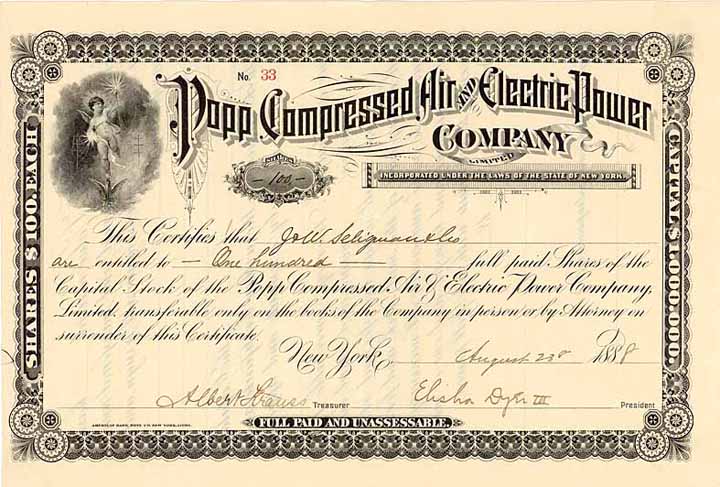 No. 33
Popp Compressed Air AND Electric Power
COMPANY
LIMITED
SHARES
100
INCORPORATED UNDER THE LAWS OF THE STATE OF NEW YORK.
SHARES $100. EACH
CAPITAL $1,000,000.
This Certifies that J & W. Seligman & Co
are entitled to — One hundred — full paid Shares of the
Capital Stock of the Popp Compressed Air & Electric Power Company,
Limited, transferable only on the books of the Company in person or by Attorney on
surrender of this Certificate.
New York August 23d 1888
Albert Krauss Treasurer Elisha Dyer III President
AMERICAN BANK NOTE CO. NEW YORK
FULL PAID AND UNASSESSABLE.